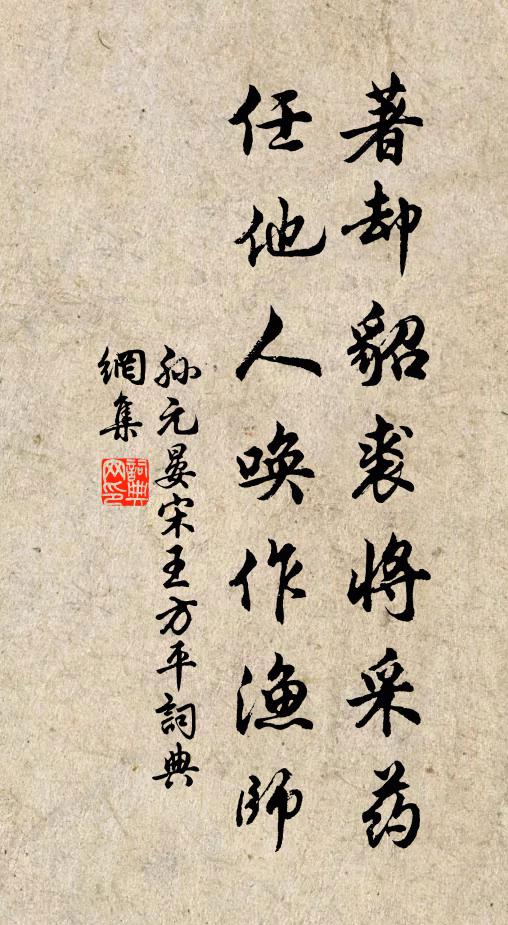 著却貂裘将采药
任他人唤作渔师
孙元晏宋王方平詞典
網集
詞典
网印